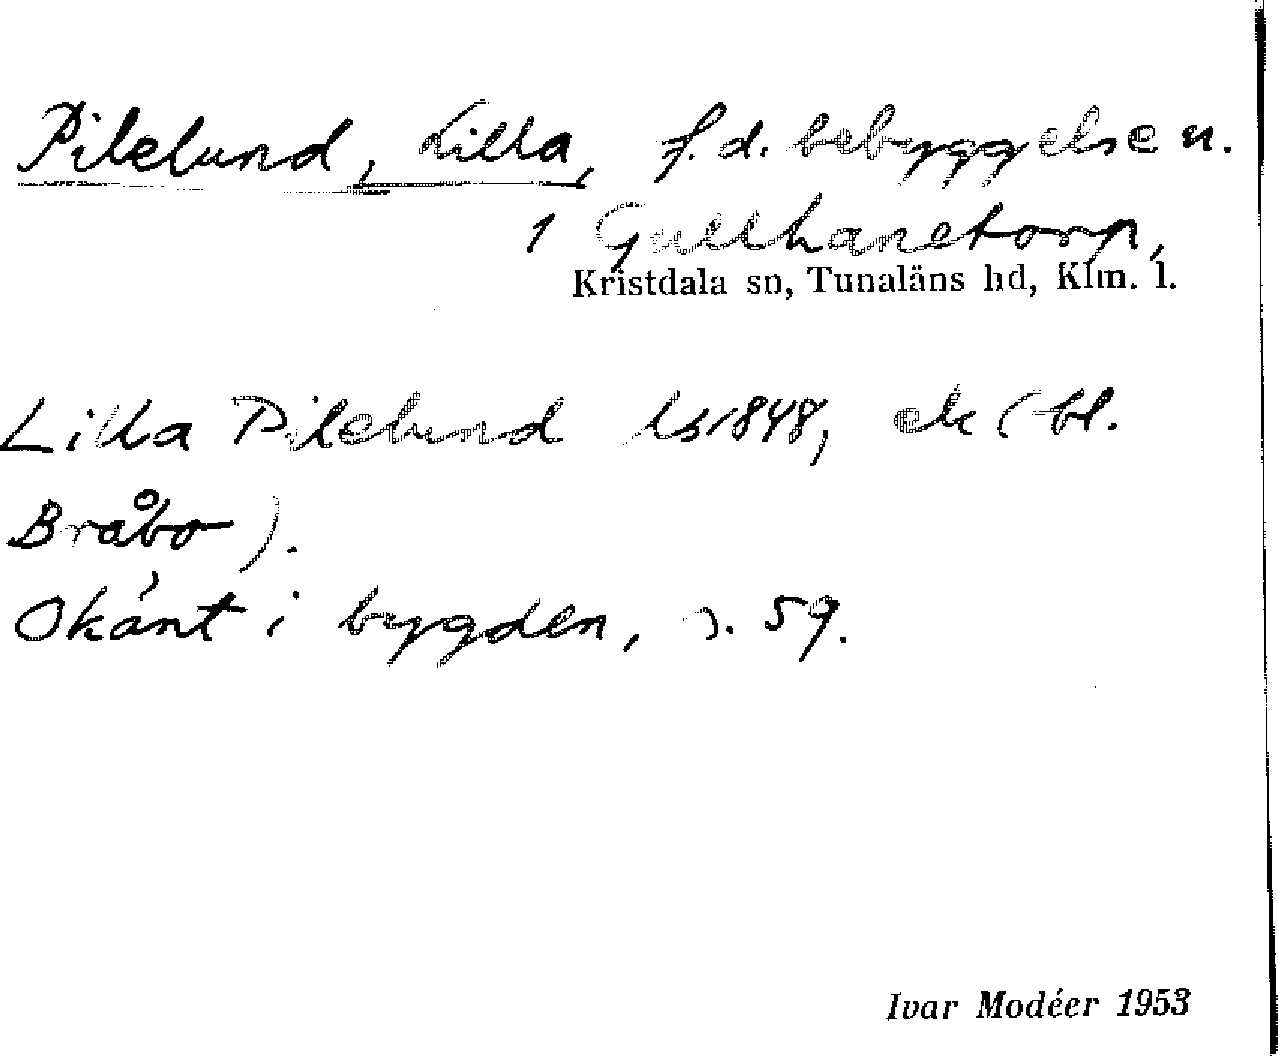 Pilelund, Lilla, f.d. bebyggelse u.
1 Gullhanetorp,
Kristdala sn, Tunaläns hd, Klm. l.
Lilla Pilelund ls 1848, ek (bl.
Bråbo).
Okánt i bygden, s. 59.
Ivar Modéer 1953